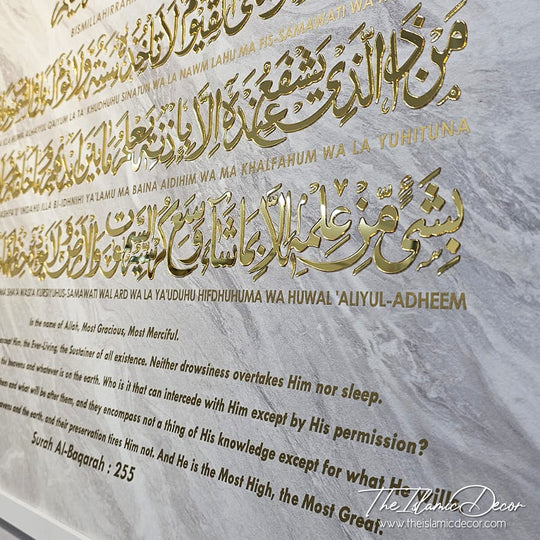 BISMILLAHIRRAH
القيوم لا تأخذه سنة ولا نوم
QAIYUM LA TA' KHUDHUHU SINATUN WA LA NAWM LAHU MA FIS-SAMAWATI WA
من ذا الذي يشفع عنده إلا بإذنه يعلم ما بين أيديهم وما
ILLA BI-IDHNIHI YA'LAMU MA BAINA AIDIHIM WA MA KHALFAHUM WA LA YUHITUNA
بشيء من علمه إلا بما شاء وسع كرسيه السموت والأرض ولا
SHA'A WASI'A KURSIYUHUS-SAMAWATI WAL ARD WA LA YA'UDUHU HIFDHUHUMA WA HUWAL 'ALIYUL-ADHEEM
In the name of Allah, Most Gracious, Most Merciful.
except Him, the Ever-Living, the Sustainer of all existence. Neither drowsiness overtakes Him nor sleep.
the heavens and whatever is on the earth. Who is it that can intercede with Him except by His permission?
them and what will be after them, and they encompass not a thing of His knowledge except for what He wills.
heavens and the earth, and their preservation tires Him not. And He is the Most High, the Most Great.
Surah Al-Baqarah : 255
The Islamic Decor
www.theislamicdecor.com